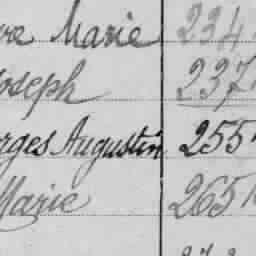 Marie 234
Joseph 237
rges Augustin 255
Marie 265